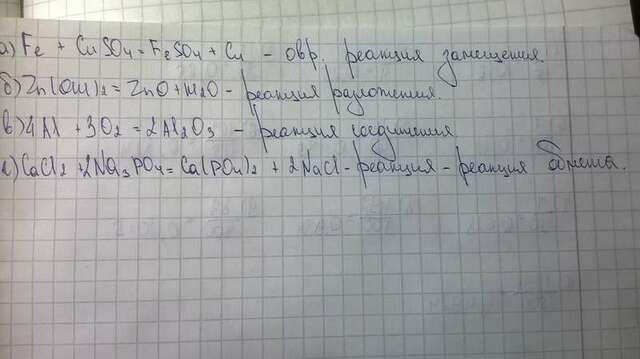 а) Fe + CuSO4 = FeSO4 + Cu - овр. реакция замещения.
б) Zn(OH)2 = ZnO + H2O - реакция разложения.
в) 4Al + 3O2 = 2Al2O3 - реакция соединения
г) CaCl2 + 2Na3PO4 = Ca(PO4)2 + 2NaCl - реакция - реакция обмена.